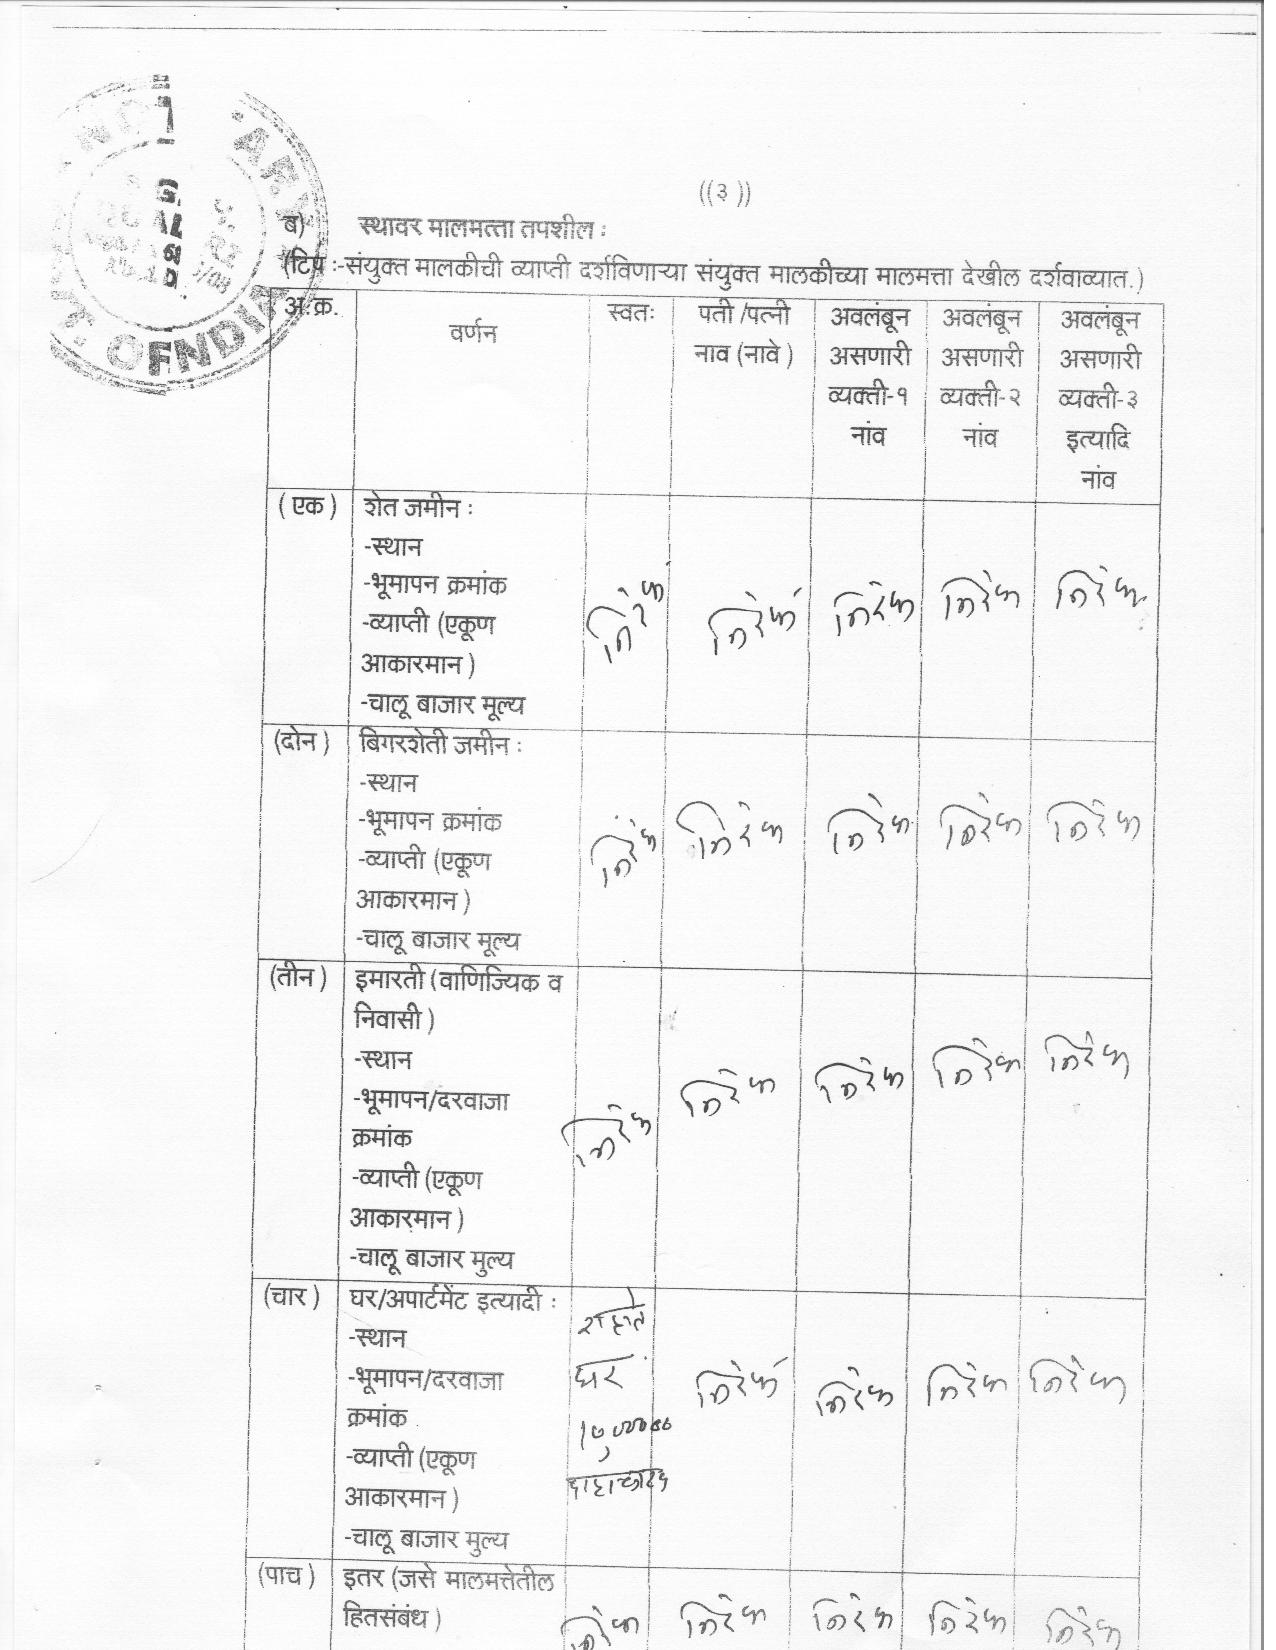 ((३))
ब) स्थावर मालमत्ता तपशील :
(टिप :-संयुक्त मालकीची व्याप्ती दर्शविणाऱ्या संयुक्त मालकीच्या मालमत्ता देखील दर्शवाव्यात.)
अ.क्र. वर्णन स्वतः पती/पत्नी नाव (नावे) अवलंबून असणारी व्यक्ती-१ नांव अवलंबून असणारी व्यक्ती-२ नांव अवलंबून असणारी व्यक्ती-३ इत्यादि नांव
(एक) शेत जमीन :
-स्थान
-भूमापन क्रमांक
-व्याप्ती (एकूण
आकारमान)
-चालू बाजार मूल्य
निरंक निरंक निरंक निरंक निरंक
(दोन) बिगरशेती जमीन :
-स्थान
-भूमापन क्रमांक
-व्याप्ती (एकूण
आकारमान)
-चालू बाजार मूल्य
निरंक निरंक निरंक निरंक निरंक
(तीन) इमारती (वाणिज्यिक व
निवासी)
-स्थान
-भूमापन/दरवाजा
क्रमांक
-व्याप्ती (एकूण
आकारमान)
-चालू बाजार मुल्य
निरंक निरंक निरंक निरंक निरंक
(चार) घर/अपार्टमेंट इत्यादी :
-स्थान
-भूमापन/दरवाजा
क्रमांक
-व्याप्ती (एकूण
आकारमान)
-चालू बाजार मुल्य
राहाते
घर
निरंक निरंक निरंक निरंक
(पाच) इतर (जसे मालमत्तेतील
हितसंबंध)
निरंक निरंक निरंक निरंक निरंक